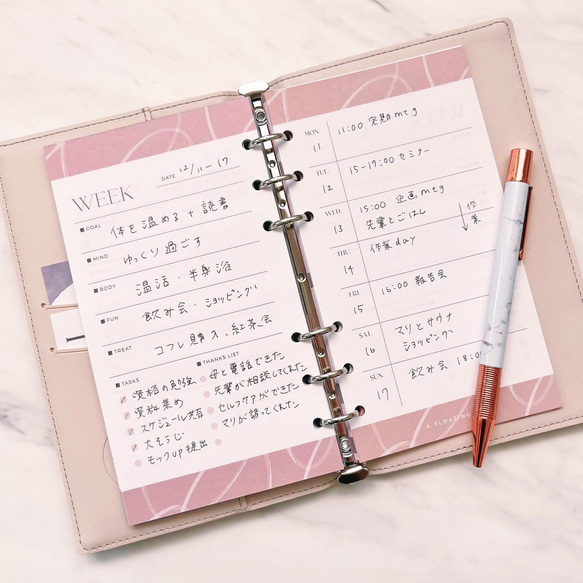 WEEK
DATE 12/11-17
GOAL 体を温める + 読書
MIND ゆっくり過ごす
BODY 温活・半身浴
FUN 飲み会・ショッピング
TREAT コフレ購入、紅茶会
TASKS
資格の勉強
資料集め
スケジュール共有
大そうじ
モックup提出
THANKS LIST
母と電話できた
先輩が相談してくれた
セルフケアができた
マリが帰ってくれた
MON. 11 11:00 定期mtg
TUE. 12 15-17:00 セミナー
WED. 13 15:00 企画mtg
先輩とごはん
作業
THU. 14 作業day
FRI. 15 16:00 報告会
SAT. 16 マリとサウナ
ショッピング
SUN. 17 飲み会 18:0
A FLOATING